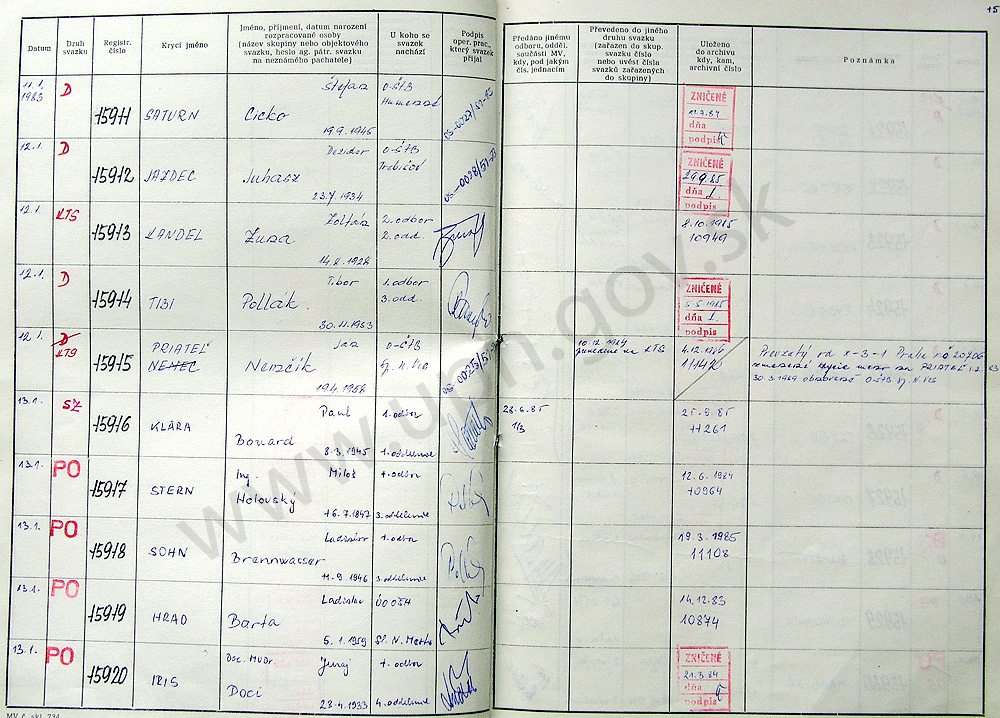 15
Datum
Druh svazku
Registr. číslo
Krycí jméno
Jméno, příjmení, datum narození
rozpracované osoby
(název skupiny nebo objektového
svazku, heslo ag. pátr. svazku
na neznámého pachatele)
U koho se
svazek
nachází
Podpis
oper. prac.,
který svazek
přijal
Předáno jinému
odboru, odděl.
součásti MV,
kdy, pod jakým
čís. jednacím
Převedeno do jiného
druhu svazku
(zařazen do skup.
svazku číslo
nebo uvést čísla
svazků zařazených
do skupiny)
Uloženo
do archivu
kdy, kam,
archivní číslo
Poznámka
11.1.
1983
D
15911
SATURN
Štefan
Cicko
19.9.1945
O-ŠTB
Humenné
OS-0027/51-83
ZNIČENÉ
11.7.84
dňa
podpis
12.1.
D
15912
JAZDEC
Dezider
Juhasz
23.7.1934
O-ŠTB
Trebišov
OS-0028/51-83
ZNIČENÉ
dňa
podpis
12.1.
KTS
15913
KANDEL
Zoltán
14.8.1928
2. odbor
2. odd.
8.10.1985
10949
12.1.
D
15914
TIBI
Tibor
Pollák
30.11.1953
1. odbor
3. odd.
ZNIČENÉ
dňa 1.
podpis
12.1
D
KTS
15915
PRIATEĽ
NEMEC
Ján
Nemčík
19.4.1956
O-ŠTB
Sp. N. Ves
10.12.1984
na KTS
4.12.1986
11142
Prevzatý od X-3-1 Praha
PRIATEĽ
O-ŠTB Sp. N. Ves
13.1.
SZ
15916
KLÁRA
Paul
Bouard
8.3.1945
1. odbor
1. oddelenie
28.6.85
1/3
25.9.85
11261
13.1.
PO
15917
STERN
Ing. Miloš
Holovský
16.7.1947
1. odbor
3. oddelenie
12.6.1984
10964
13.1.
PO
15918
SOHN
Ladislav
Brennwasser
11.9.1946
1. odbor
3. oddelenie
19.3.1985
11108
13.1.
PO
15919
HRAD
Ladislav
Barta
5.1.1959
14.12.83
10874
13.1.
PO
15920
IRIS
Doc. MUDr. Juraj
Doci
28.4.1933
1. odbor
4. oddelenie
ZNIČENÉ
21.3.84
dňa
podpis
www.upn.gov.sk